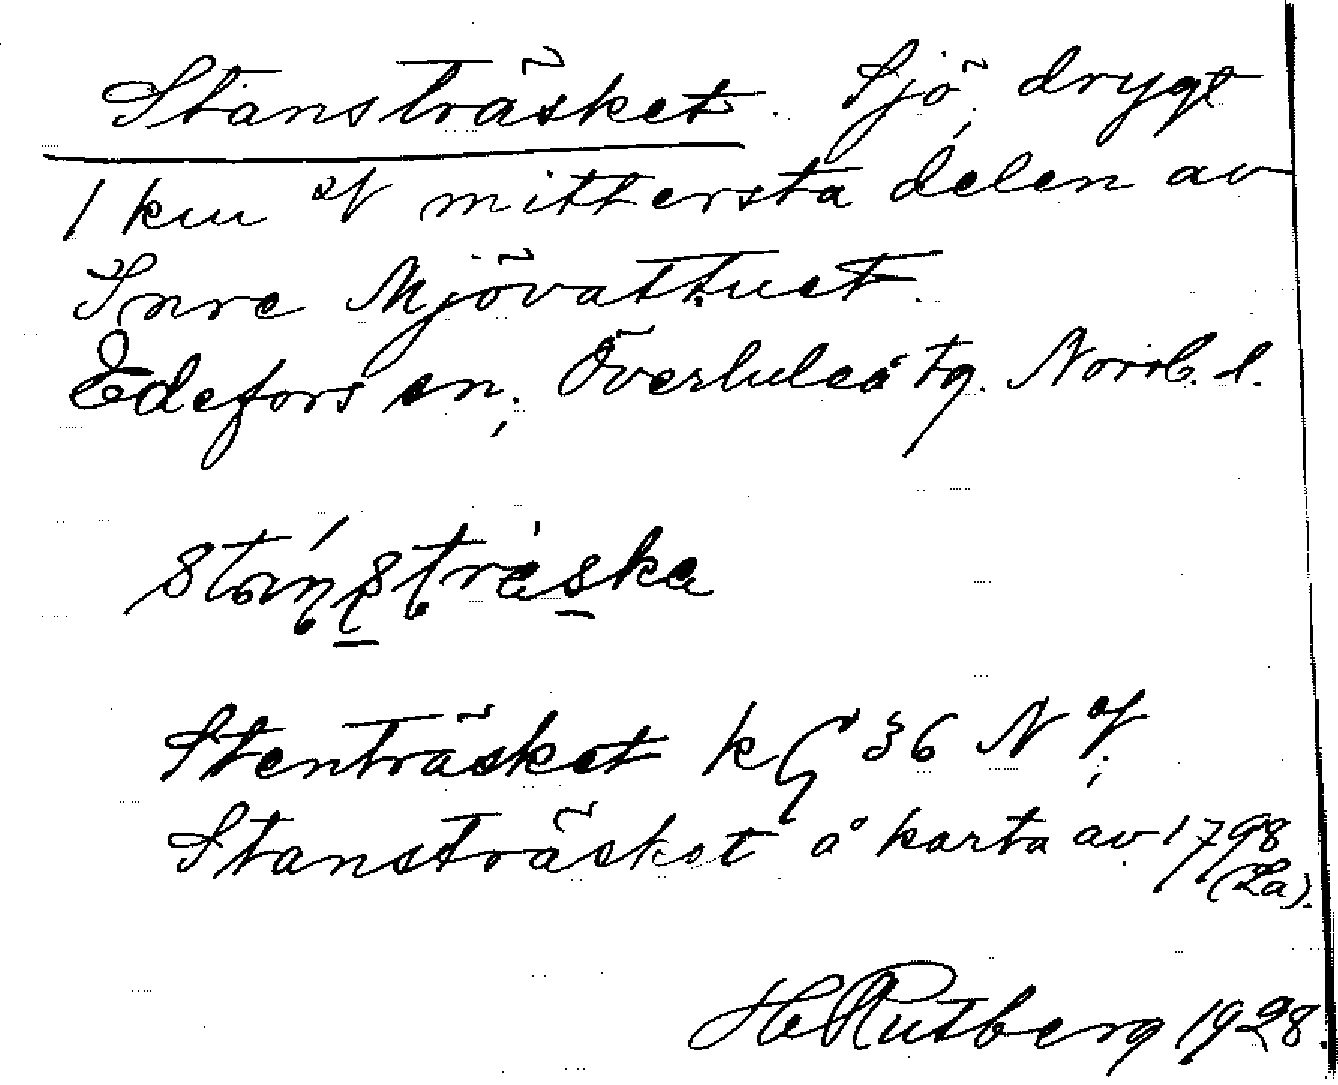 Stansträsket. Sjö, drygt
1 km V mittersta delen av
Inre Mjövattnet.
Edefors sn, Överluleå tg. Norrb. l.
stanstrāska
Stenträsket k 36 NV;
Stansträsket å karta av 1798
(La).
H Rutberg 1928.